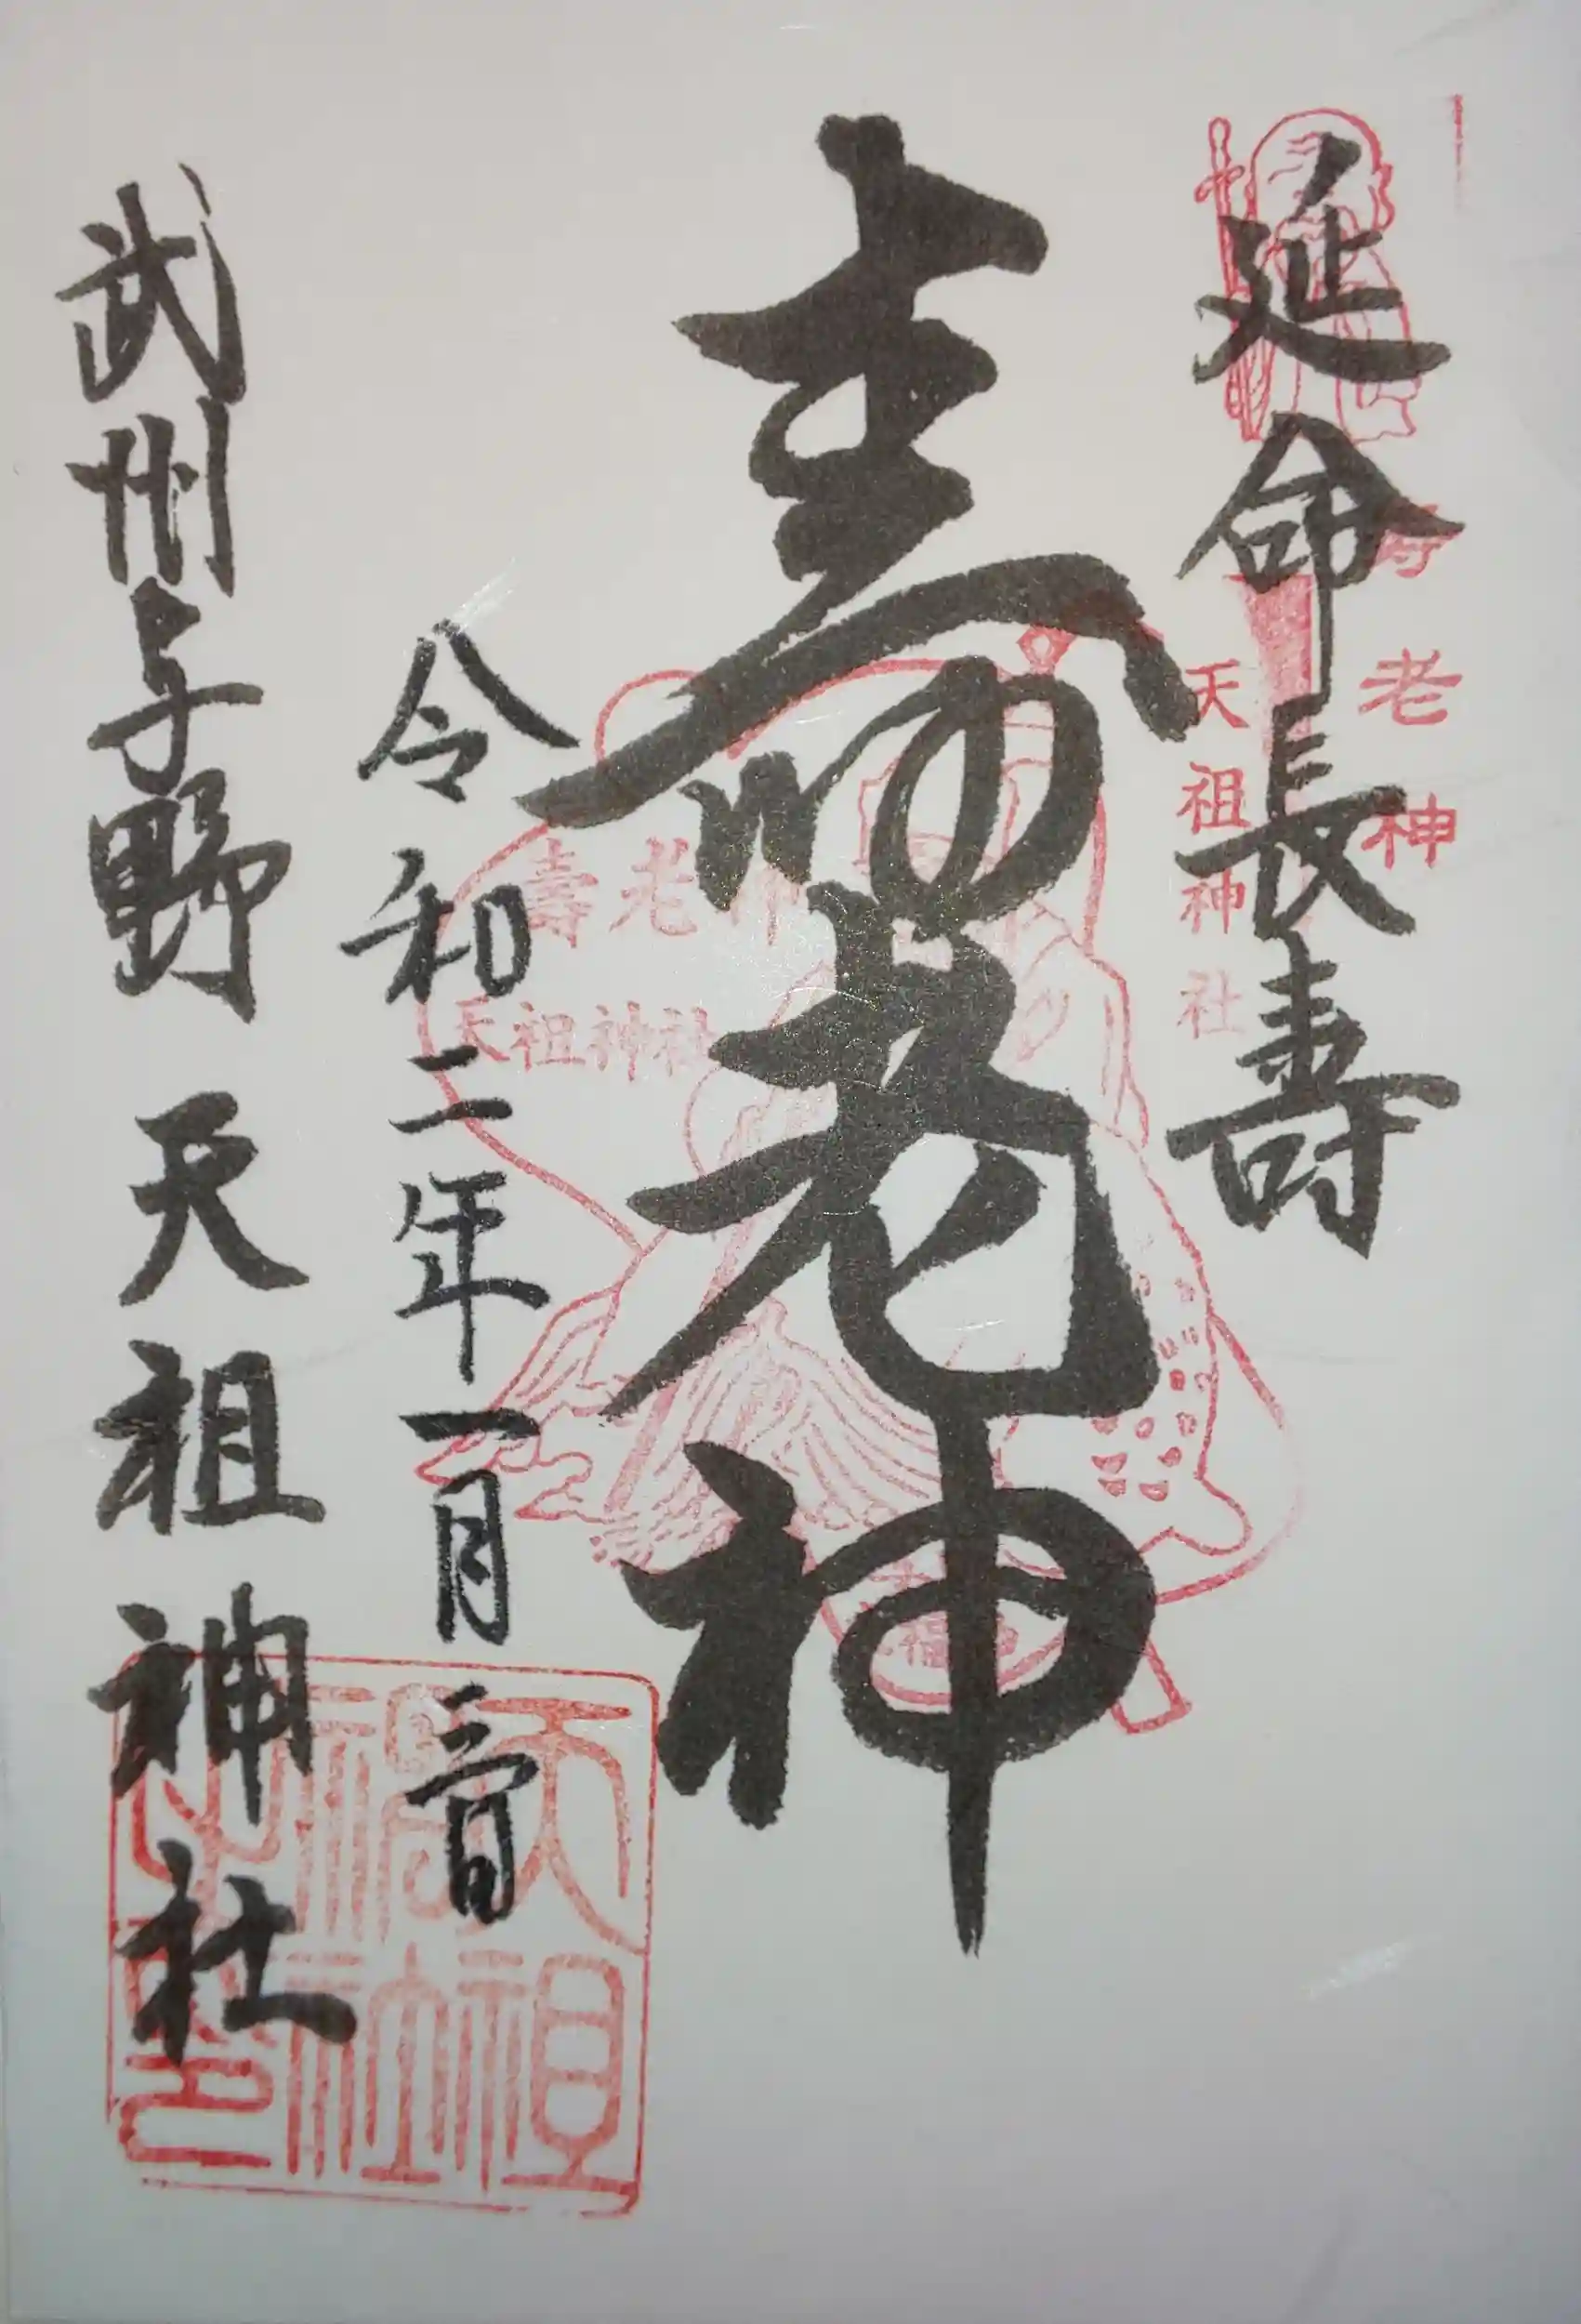 延命長壽
寿老神
天祖神社
壽老神
壽老神
天祖神社
福
令和二年一月三日
武州与野 天祖神社
天祖神社